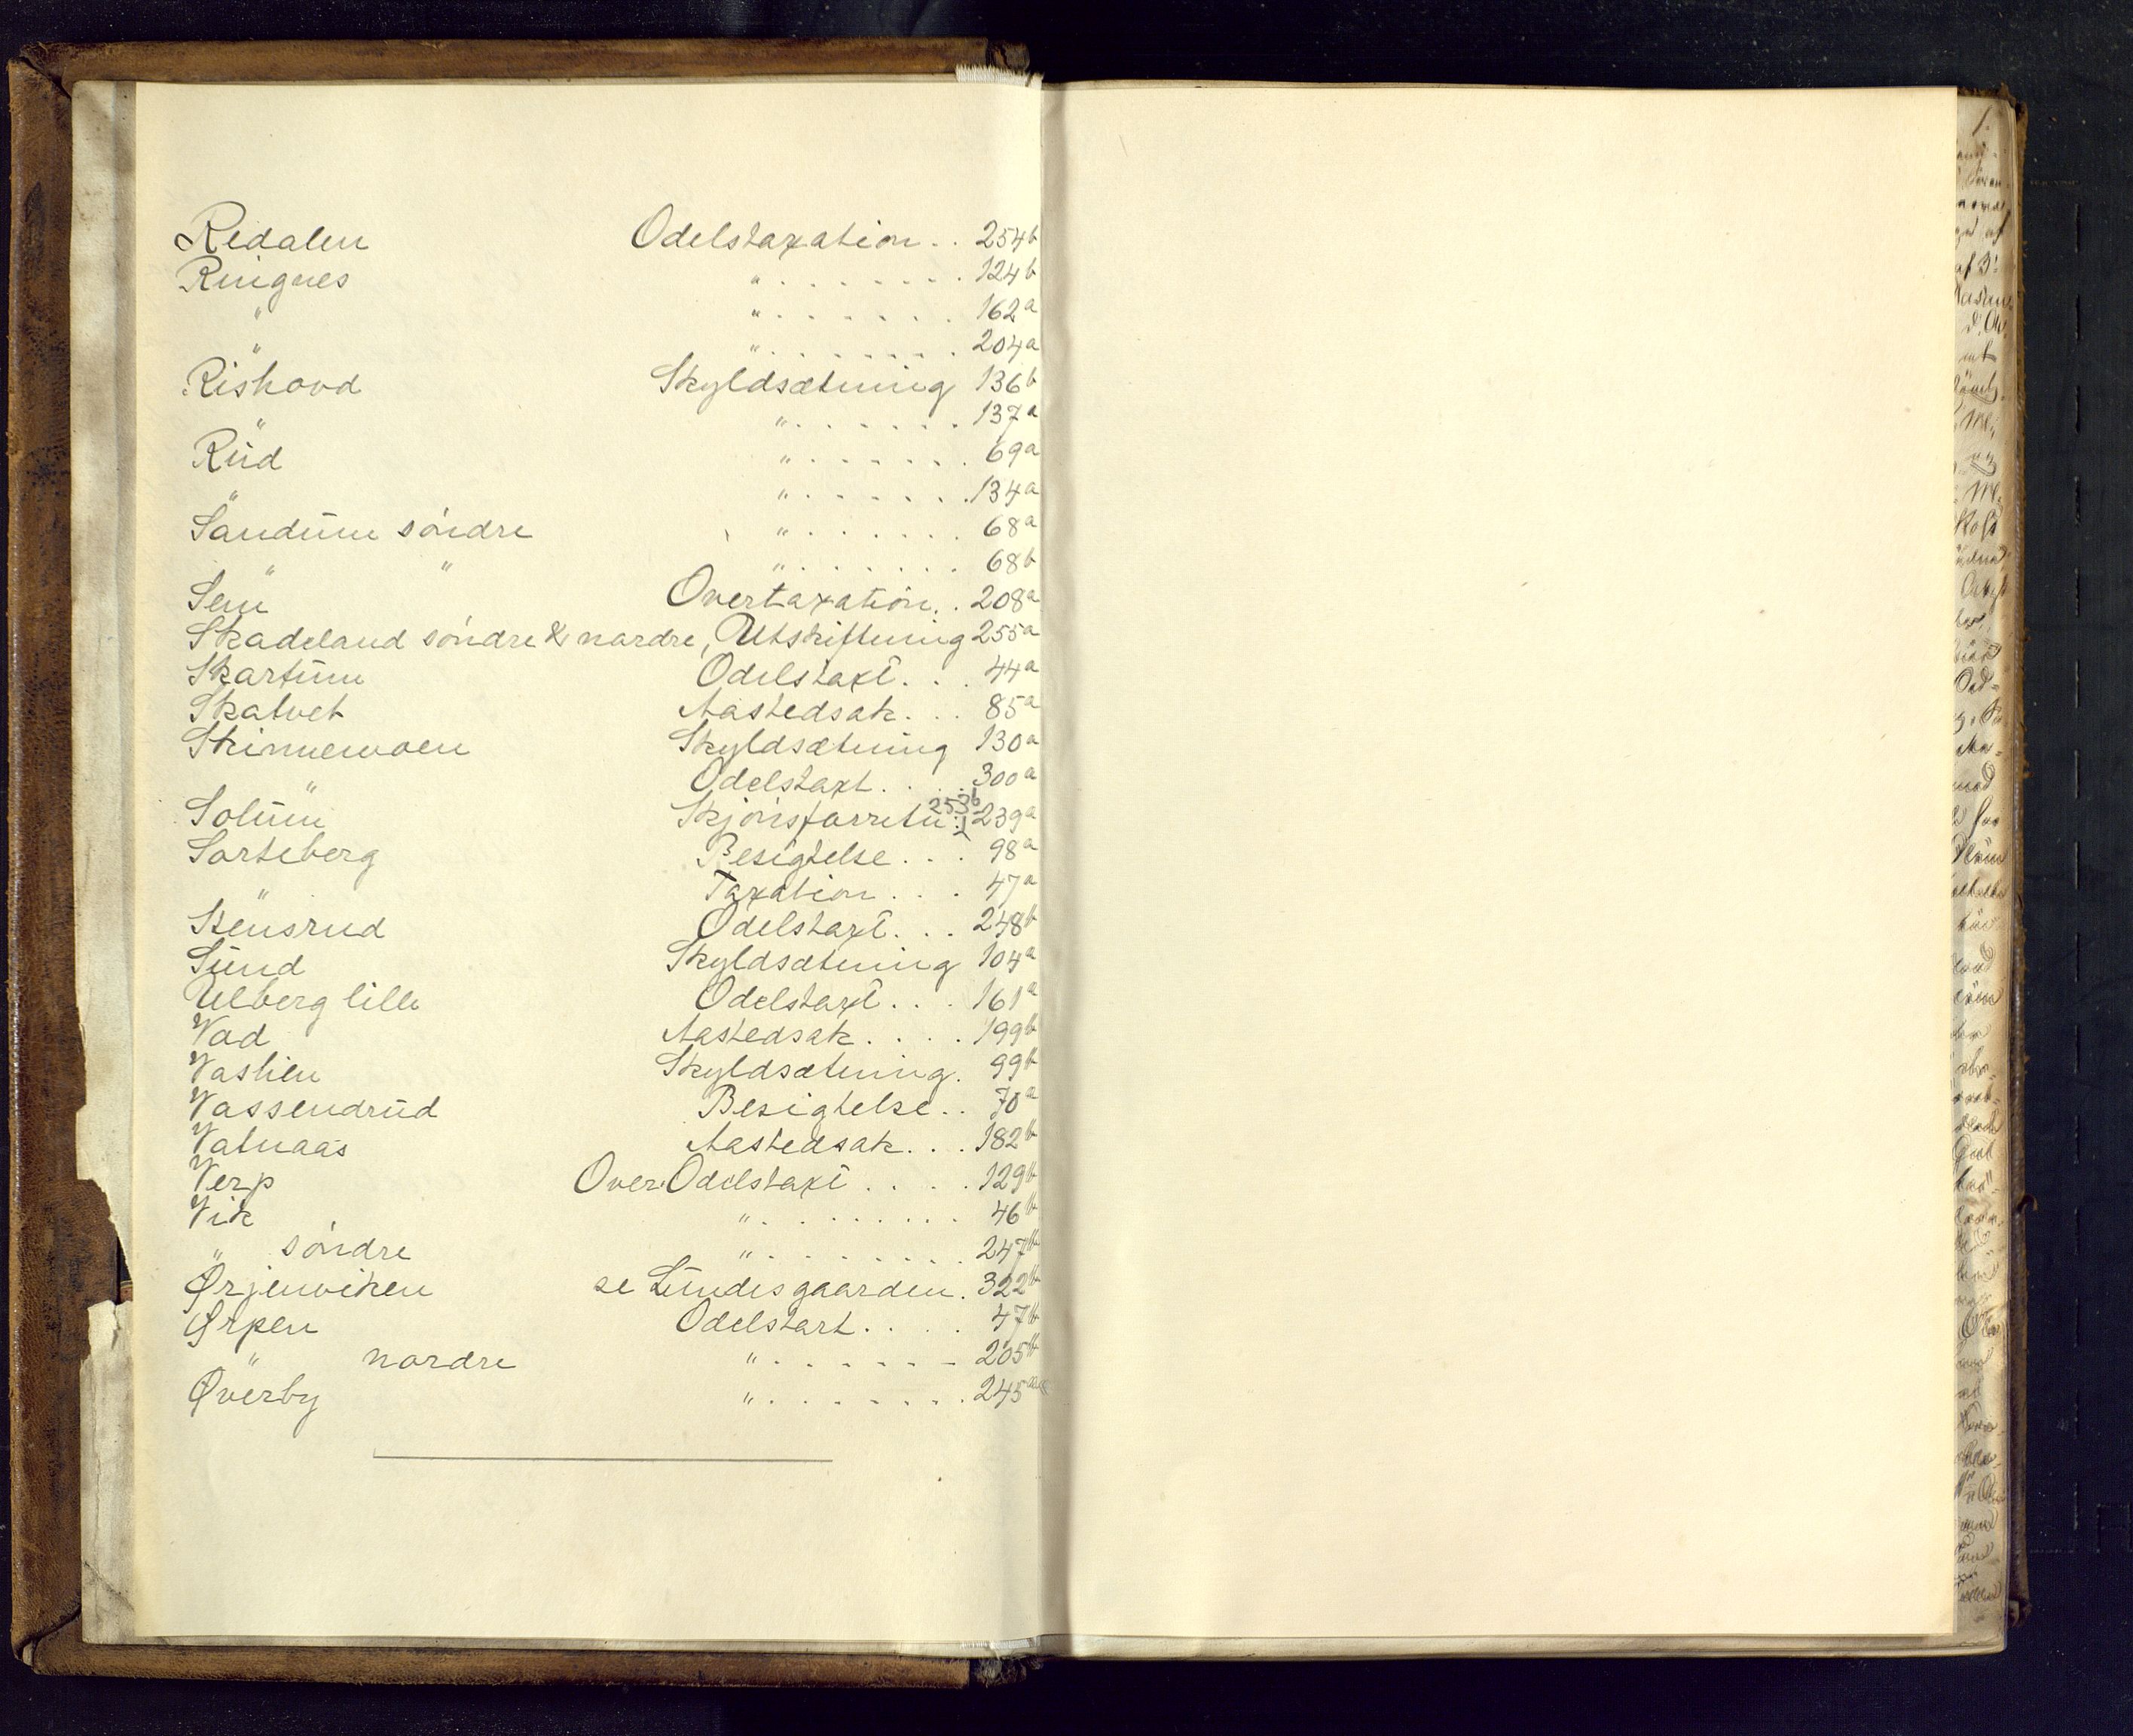 Redalen Odelstaxation . . 254b
Ringnes " . . . . . . . . 124b
" " . . . . . . . 162a
" " . . . . . . . . 204a
Rishovd Skyldsætning 136b
" " . . . . . . . 137a
Rud " . . . . . . . 69a
" " . . . . . . . 134a
Sandum söndre " . . . . . . . 68a
" " " . . . . . . . 68b
Sem Overtaxation . . 208a
Skadeland söndre & nordre, Utskiftning 255a
Skartum Odelstaxt . . . 44a
Skatvet Aastedsak . . . 85a
Skinnemoen Skyldsætning 130a
" Odelstaxt . . . . 300a
253b
Solum Skjönsforretn : 239a
Sorteberg Besigtelse . . . 98a
" Taxation . . . 47a
Stensrud Odelstaxt . . . 248b
Sund Skyldsætning 104a
Ulberg lille Odelstaxt . . . 161a
Vad Aastedsak . . . . 199b
Vaslien Skyldsætning . 99b
Vassendrud Besigtelse . . 70a
Vatnaas Aastedsak . . . 182b
Verp Over Odelstaxt . . . . . 129b
Vik " . . . . . . . . . 46b
" söndre " . . . . . . . . . 247b
Ørjenviken se Lundesgaarden . 322b
Ørpen Odelstaxt . . . . . 47b
" nordre " . . . . . . . 205b
Øverby " . . . . . . . . 245